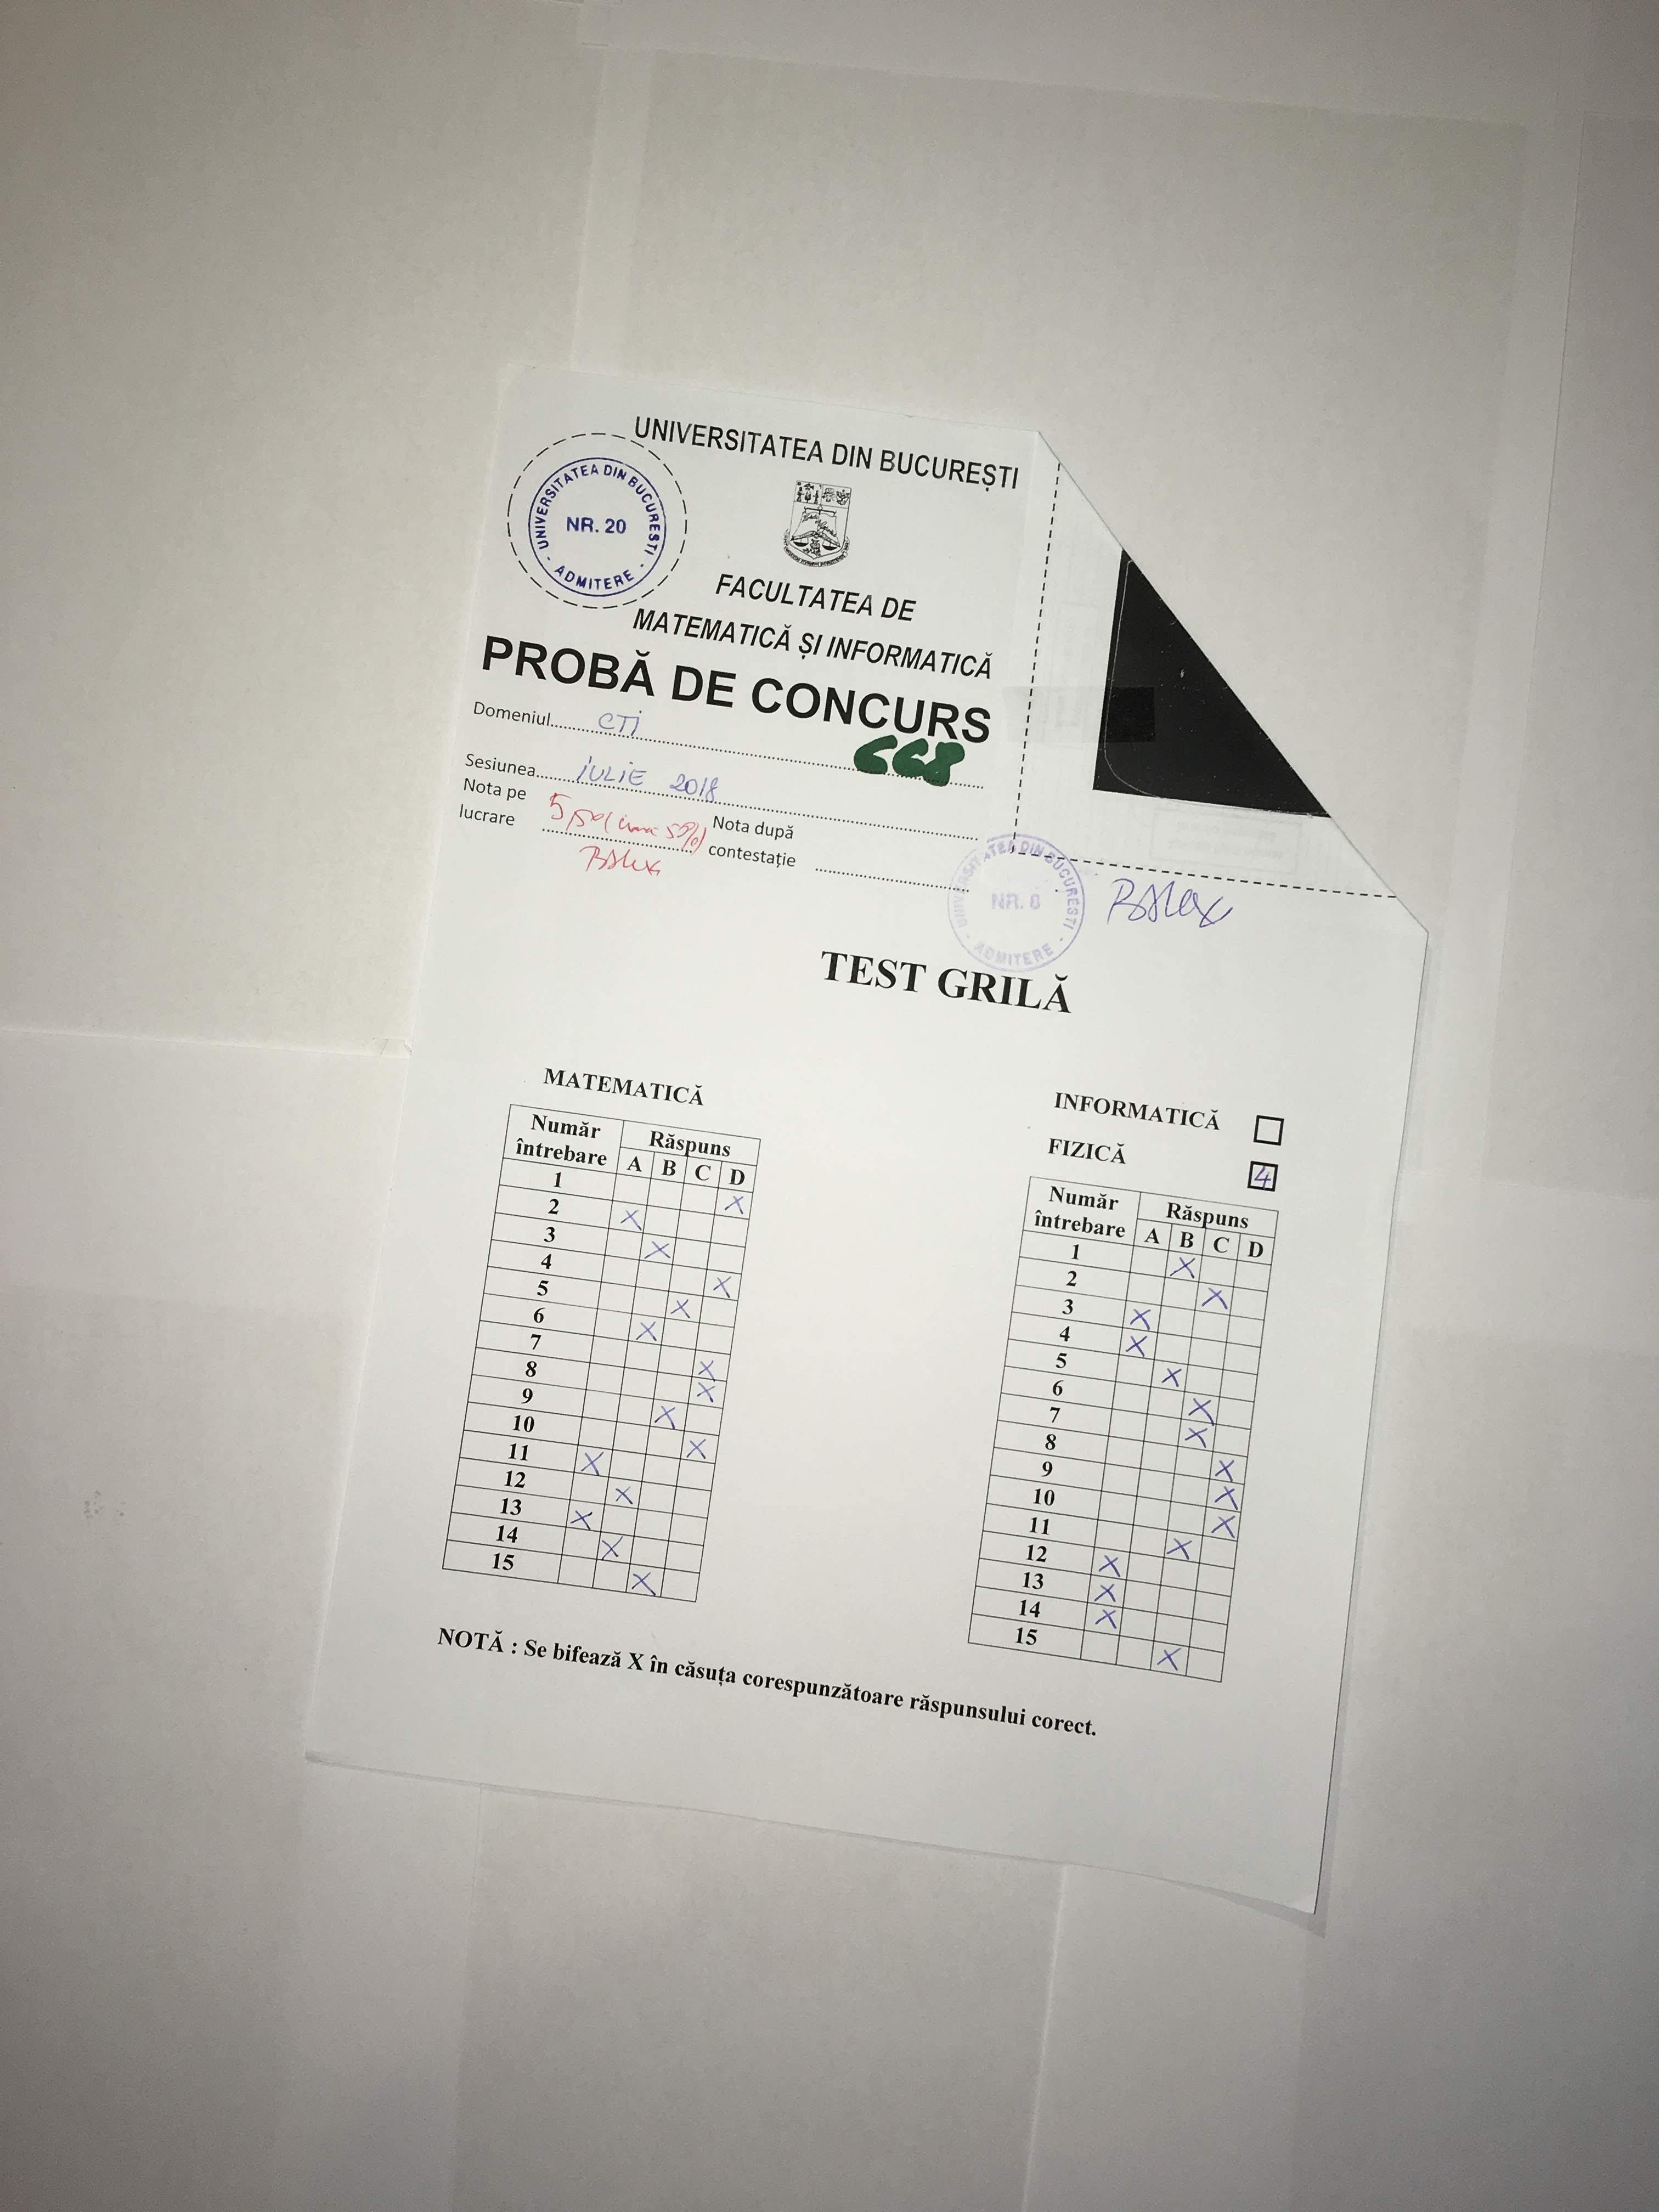 UNIVERSITATEA DIN BUCUREȘTI
UNIVERSITATEA DIN BUCUREȘTI
NR. 20
- ADMITERE -
FACULTATEA DE
MATEMATICĂ ȘI INFORMATICĂ
PROBĂ DE CONCURS
Domeniul.......... CTI
Sesiunea.......... IULIE 2018
Nota pe lucrare 5,50
Nota după contestație
UNIVERSITATEA DIN BUCUREȘTI
NR. 8
- ADMITERE -
TEST GRILĂ
MATEMATICĂ
Număr întrebare Răspuns
A B C D
1 X
2 X
3 X
4 X
5 X
6 X
7 X
8 X
9 X
10 X
11 X
12 X
13 X
14 X
15 X
INFORMATICĂ
FIZICĂ 4
Număr întrebare Răspuns
A B C D
1 X
2 X
3 X
4 X
5 X
6 X
7 X
8 X
9 X
10 X
11 X
12 X
13 X
14 X
15 X
NOTĂ : Se bifează X în căsuța corespunzătoare răspunsului corect.